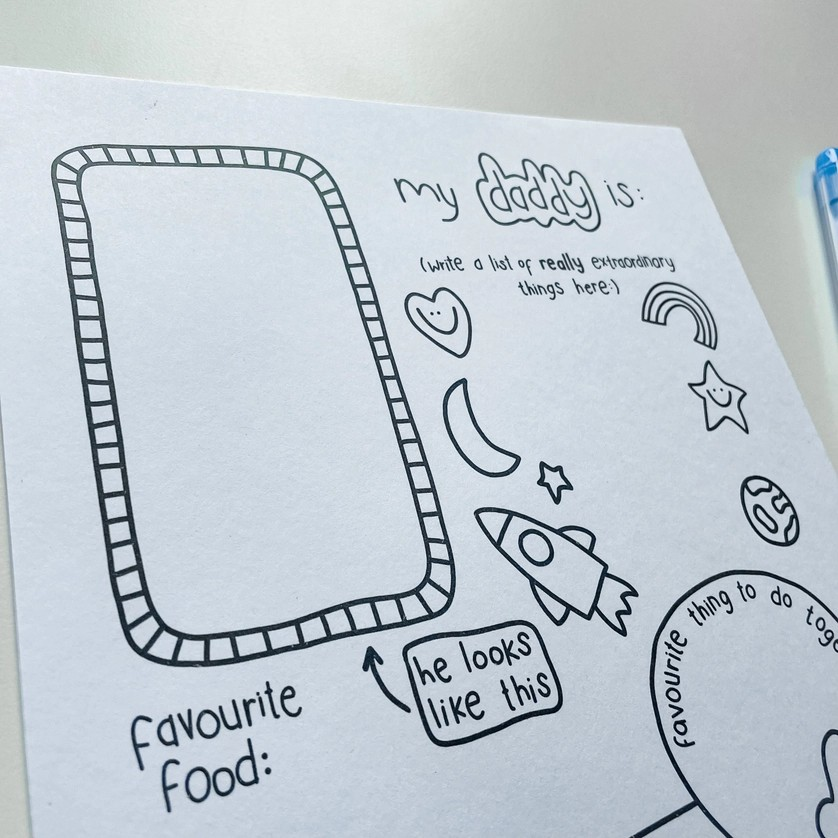 my daddy is:
(write a list of really extraordinary
things here:)
he looks
like this
favourite
food:
favourite thing to do